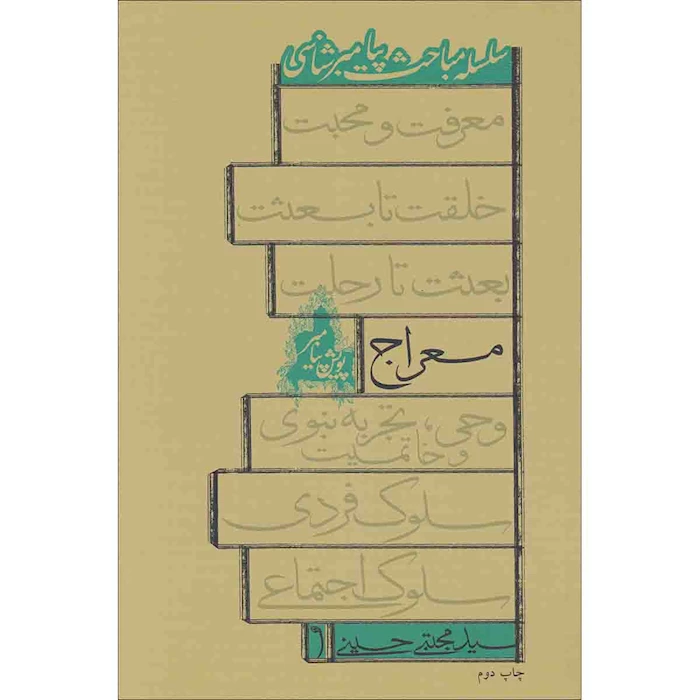 سلسله مباحث پیامبرشناسی
معرفت و محبت
خلقت تا بعثت
بعثت تا رحلت
معراج
پویش پیامبر
وحی، تجربه نبوی
و خاتمیت
سلوک فردی
سلوک اجتماعی
سید مجتبی حسینی
چاپ دوم